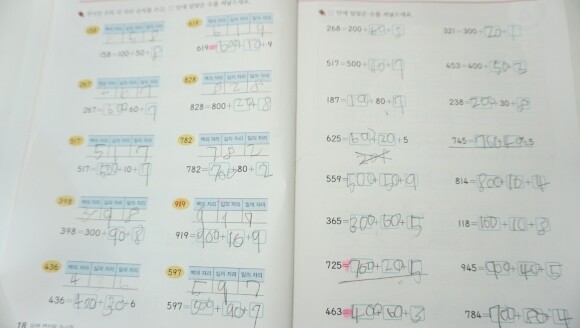 안에 알맞은 수를 써넣으세요.
158
백의 자리 십의 자리 일의 자리
158=100+50+8
267
백의 자리 십의 자리 일의 자리
267= 60+7
517
백의 자리 십의 자리 일의 자리
5 1 7
517=500+10+7
398
백의 자리 십의 자리 일의 자리
3 9 8
398=300+90+8
436
백의 자리 십의 자리 일의 자리
436=400+30+6
18
619
백의 자리 십의 자리 일의 자리
619=600+10+9
828
백의 자리 십의 자리 일의 자리
8 2 8
828=800+20+8
782
백의 자리 십의 자리 일의 자리
7 8 2
782=700+80+2
919
백의 자리 십의 자리 일의 자리
9 1 9
919=900+10+9
597
백의 자리 십의 자리 일의 자리
5 9 7
597=500+90+7
안에 알맞은 수를 써넣으세요.
268=200+60+
517=500+ +7
187= +80+7
625= +20+5
559=500+50+9
365=300+60+5
725=700+20+5
463=400+60+3
321=300+20+1
453=400+50+3
238= +30+8
745=700+ +5
814=800+10+4
118=100+10+8
945=900+40+5
784=700+ +4